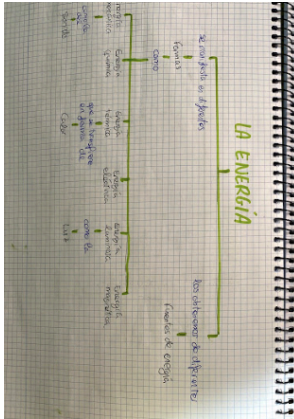 LA ENERGÍA
se manifiesta en diferentes
formas
como
Energía
mecánica
Energía
química
Energía
térmica
que se transfiere
en forma de
Calor
Energía
eléctrica
Energía
luminosa
como la
Luz
Energía
magnética
diferentes
fuentes de energía